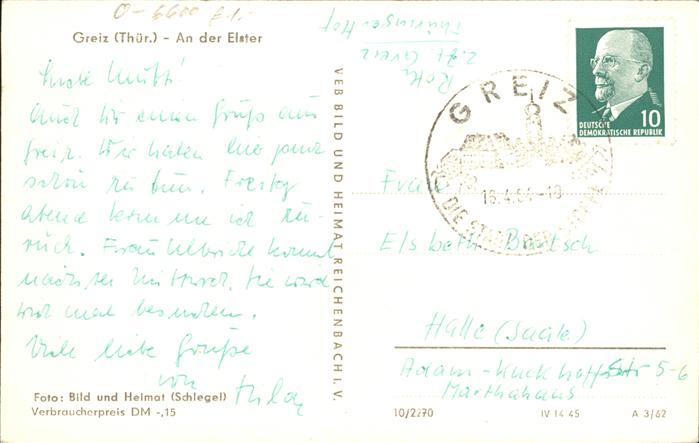 O-6600 £1.-
Greiz (Thür.) - An der Elster
Auch Dir einen Gruß aus
Greiz. Wir haben hier ganz
schön zu tun. Freitag
abend komme ich zu-
rück. Frau Ulbricht kommt
nächsten Mittwoch. Sie wird
Viele liebe Grüße
von
Foto: Bild und Heimat (Schlegel)
Verbraucherpreis DM -,15
VEB BILD UND HEIMAT REICHENBACH i. V.
z. Zt. Greiz
Thüringer Hof
GREIZ
DIE STADT DER
DEUTSCHE
DEMOKRATISCHE REPUBLIK
10
Frau
Elsbeth Bartsch
Halle (Saale)
Adam-Kuckhoff-Str 5-6
Marthahaus
10/2270
IV 14 45
A 3/62